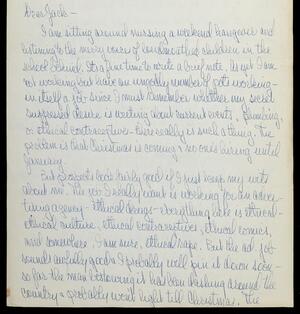 Dear Jack -
I am sitting around nursing a weekend hangover and
listening to the merry voices of loudmouthed children in the
school behind. It's a fine time to write a brief note. As yet I am
not working but have an ungodly number of jobs working -
in itself a job since I must remember whether my
suspected is writing about current events, plumbing,
or ethical contraceptives - there really is such a thing. The
problem is that Christmas is coming & no one's hiring until
January.
But prospects look fairly good if I just keep my wits
about me. The job I really want is working for an adver-
tising agency - ethical drugs - everything here is ethical -
ethical culture, ethical contraceptives, ethical comics,
and somewhere, I am sure, ethical rape. But the ad job
sounds awfully good & I probably will pin it down soon -
so far the man bestowing it has been dashing around the
country & probably won't light till Christmas. The